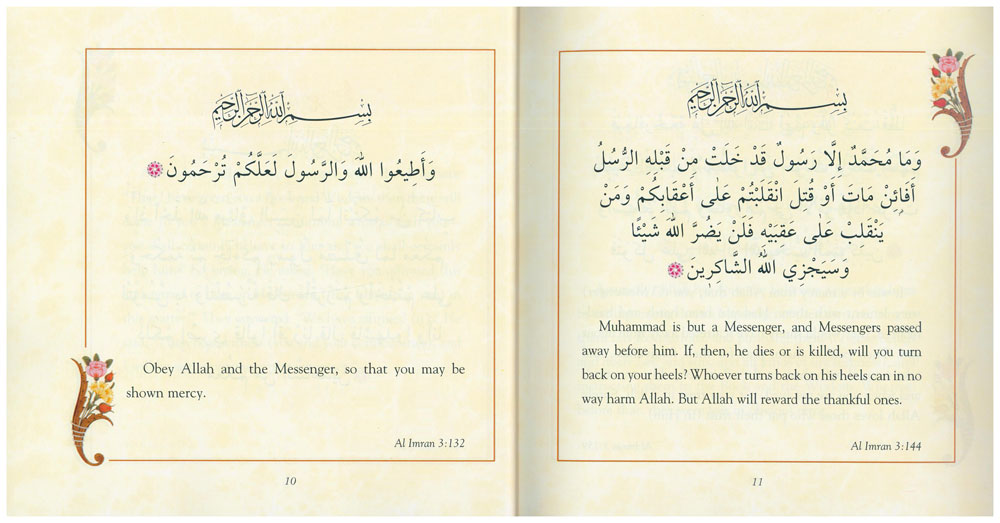 بِسْمِ اللهِ الرَّحْمٰنِ الرَّحِيْمِ
وَأَطِيعُوا اللهَ وَالرَّسُولَ لَعَلَّكُمْ تُرْحَمُونَ
Obey Allah and the Messenger, so that you may be
shown mercy.
Al Imran 3:132
10
بِسْمِ اللهِ الرَّحْمٰنِ الرَّحِيْمِ
وَمَا مُحَمَّدٌ إِلَّا رَسُولٌ قَدْ خَلَتْ مِنْ قَبْلِهِ الرُّسُلُ
أَفَائِنْ مَاتَ أَوْ قُتِلَ انْقَلَبْتُمْ عَلٰى أَعْقَابِكُمْ وَمَنْ
يَنْقَلِبْ عَلٰى عَقِبَيْهِ فَلَنْ يَضُرَّ اللهَ شَيْئًا
وَسَيَجْزِي اللهُ الشَّاكِرِينَ
Muhammad is but a Messenger, and Messengers passed
away before him. If, then, he dies or is killed, will you turn
back on your heels? Whoever turns back on his heels can in no
way harm Allah. But Allah will reward the thankful ones.
Al Imran 3:144
11